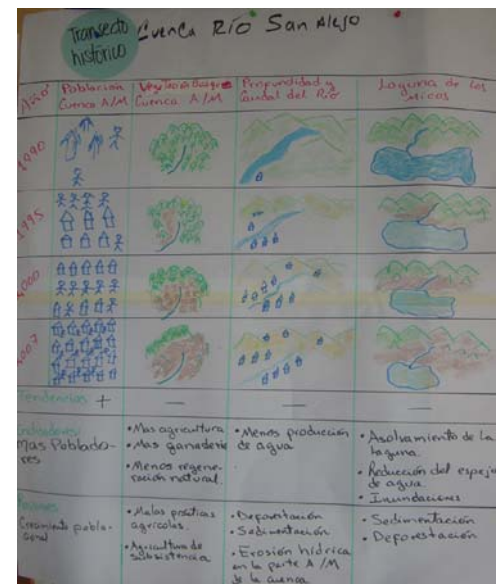 Transecto
histórico
Cuenca Río San Alejo
Año
Población
Cuenca A/M
Cuenca A/M
Profundidad y
Caudal del Río
Laguna de los
Micos
1990
1995
2000
2007
Tendencias + — — —
Indicadores
Mas Poblado-
res
• Mas agricultura
• Mas ganaderia
• Menos regene-
ración natural.
• Menos producción
de agua
• Asolvamiento de la
laguna.
• Reducción del espejo
de agua.
• Inundaciones
Crecimiento pobla-
cional
• Malas prácticas
agrícolas.
• Agricultura de
subsistencia
• Deforestación
• Sedimentación
• Erosión hídrica
en la parte A/M
de la cuenca
• Sedimentación
• Deforestación